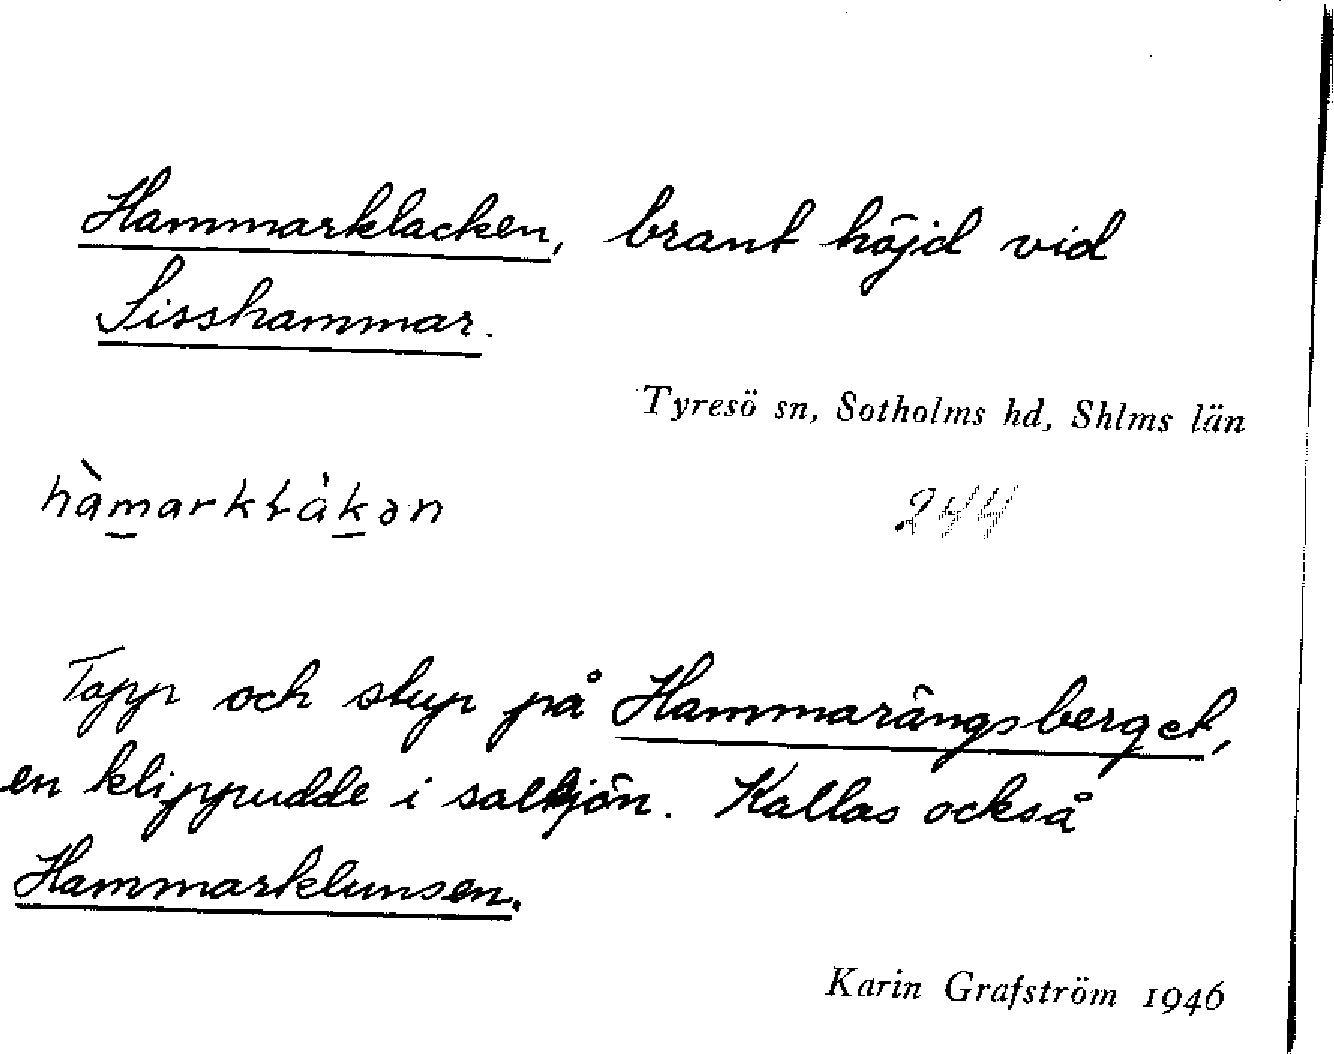 Hammarklacken, brant höjd vid
Sisshammar.
Tyresö sn, Sotholms hd, Shlms län
hàmarkɫàkən
244
Topp och stup på Hammarängsberget,
en klippudde i saltsjön. Kallas också
Hammarklunsen.
Karin Grafström 1946